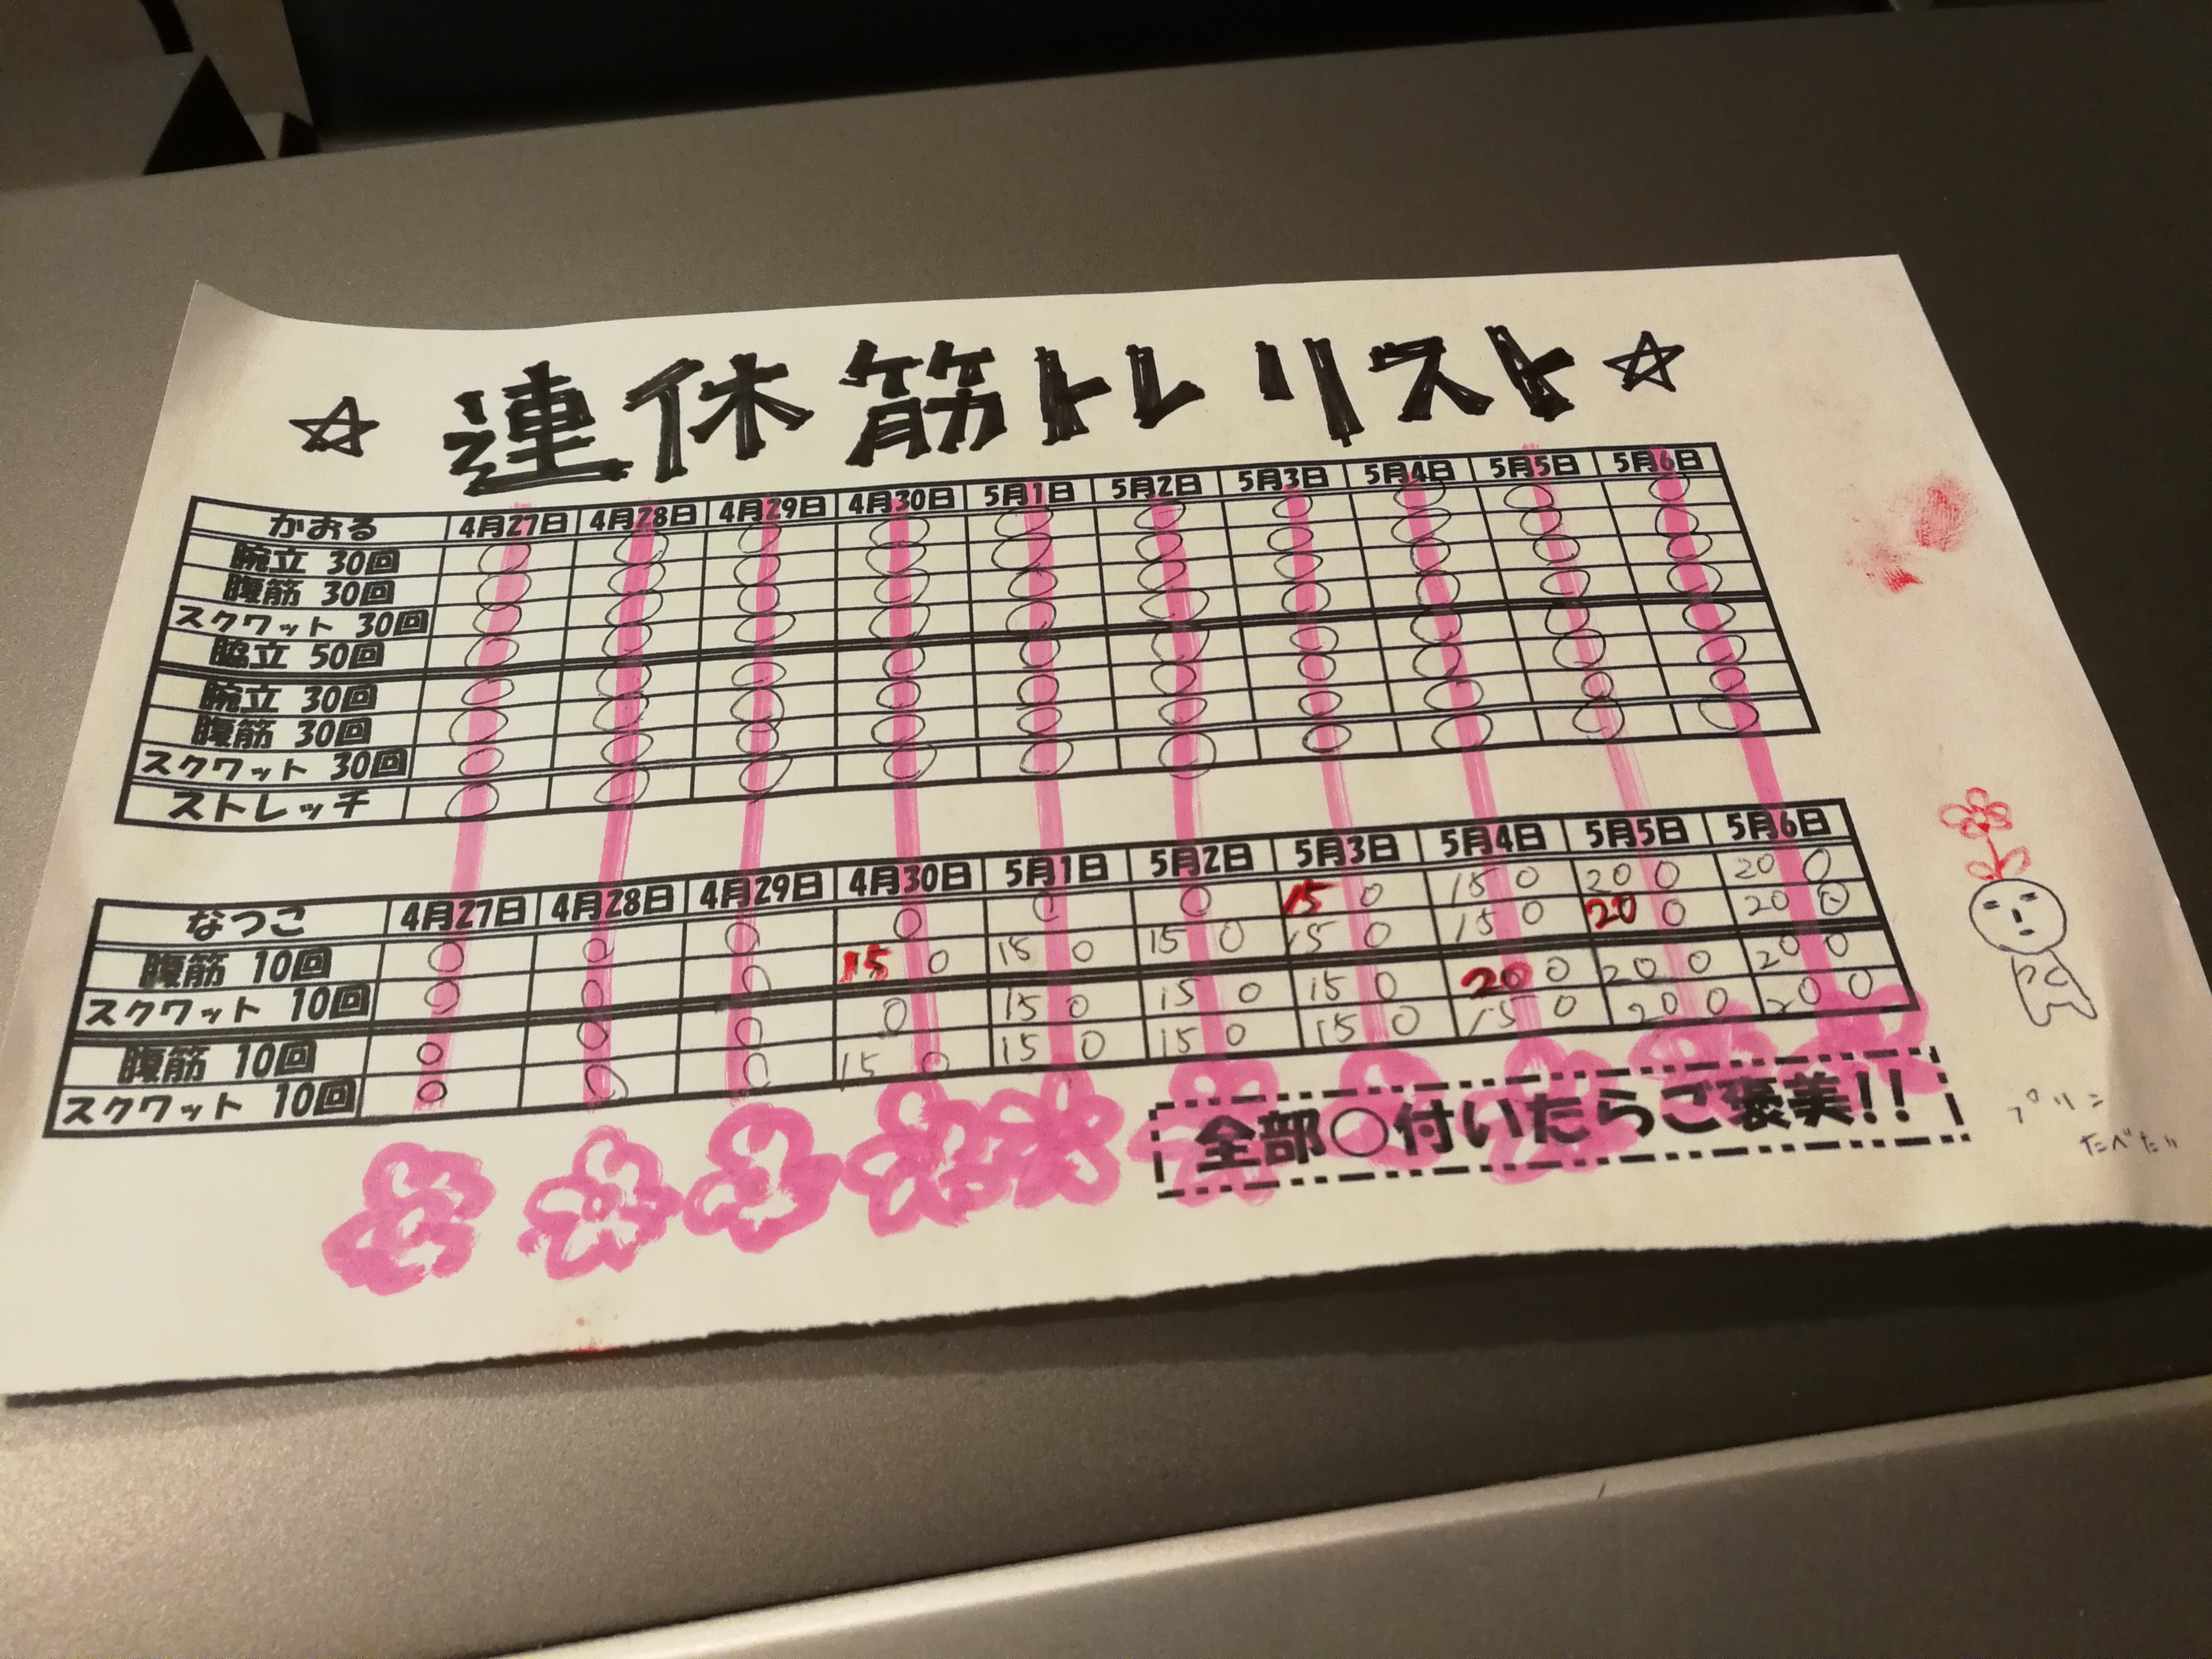 ☆ 連休筋トレリスト ☆
かおる 4月27日 4月28日 4月29日 4月30日 5月1日 5月2日 5月3日 5月4日 5月5日 5月6日
腕立 30回 ○ ○ ○ ○ ○ ○ ○ ○ ○ ○
腹筋 30回 ○ ○ ○ ○ ○ ○ ○ ○ ○ ○
スクワット 30回 ○ ○ ○ ○ ○ ○ ○ ○ ○ ○
脇立 50回 ○ ○ ○ ○ ○ ○ ○ ○ ○ ○
腕立 30回 ○ ○ ○ ○ ○ ○ ○ ○ ○ ○
腹筋 30回 ○ ○ ○ ○ ○ ○ ○ ○ ○ ○
スクワット 30回 ○ ○ ○ ○ ○ ○ ○ ○ ○ ○
ストレッチ ○ ○ ○ ○ ○ ○ ○ ○ ○ ○
なつこ 4月27日 4月28日 4月29日 4月30日 5月1日 5月2日 5月3日 5月4日 5月5日 5月6日
腹筋 10回 ○ ○ ○ ○ ○ ○ 15 ○ 15 ○ 20 ○ 20 ○
スクワット 10回 ○ ○ ○ 15 ○ 15 ○ 15 ○ 15 ○ 15 ○ 20 ○ 20 ○
腹筋 10回 ○ ○ ○ ○ 15 ○ 15 ○ 15 ○ 20 ○ 20 ○ 20 ○
スクワット 10回 ○ ○ ○ 15 ○ 15 ○ 15 ○ 15 ○ 15 ○ 20 ○ 20 ○
全部○付いたらご褒美!!
プリン
たべたい